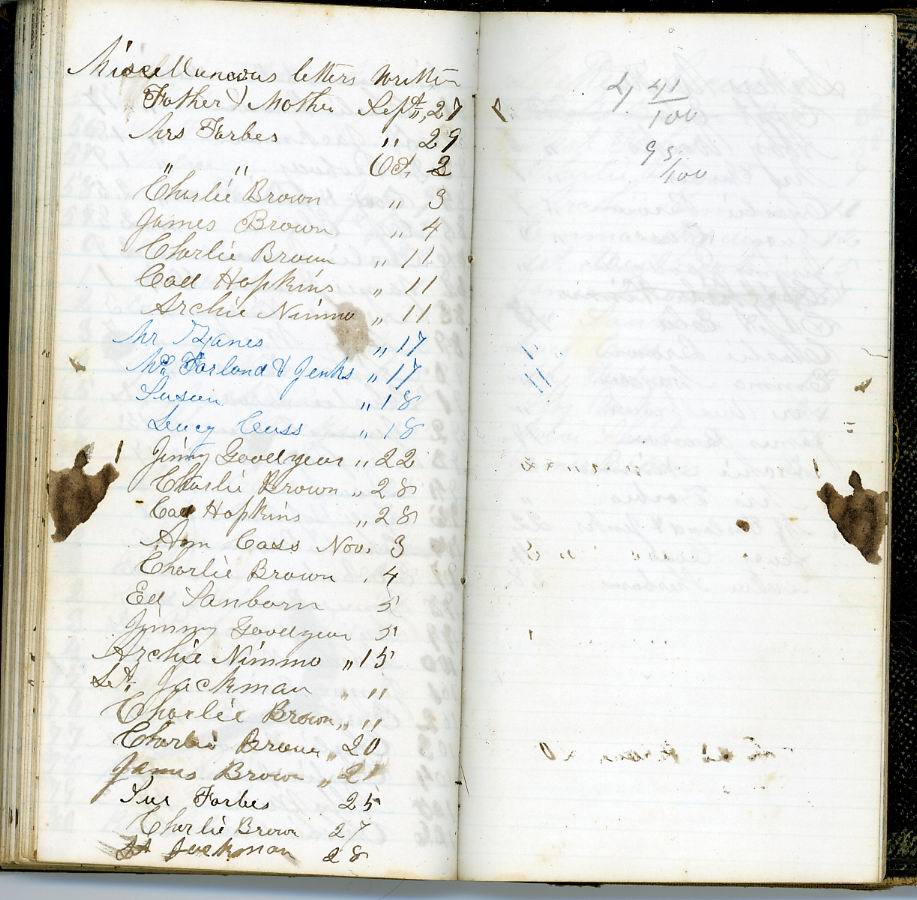 Miscellaneous letters written
Father & Mother Sept, 27
Mrs Forbes " 29
" " Oct 2
Charlie Brown " 3
James Brown " 4
Charlie Brown " 11
Cad Hopkins " 11
Archie Nimmo " 11
Mr " 17
McFarland & Jenks " 17
Susien " 18
Lucy Cuss " 18
Jimmy Goodyear " 22
Charlie Brown " 28
Cad Hopkins " 28
Ann Cass Nov. 3
Charlie Brown . 4
Ed Sanborn 5
Jimmy Goodyear 5
Archie Nimmo " 15
Lt. Jackman " "
Charlie Brown " "
Charlie Brown " 20
James Brown " 21
Sue Forbes 25
Charlie Brown 27
Lt Jackman 28
2, 41/100
95/100